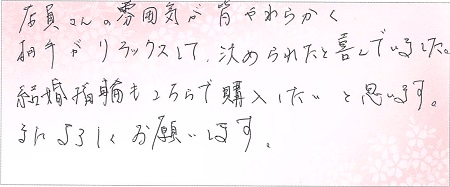 店員さんの雰囲気が皆やわらかく
相手がリラックスして、決められたと喜んでいました。
結婚指輪もこちらで購入したいと思います。
またよろしくお願いします。